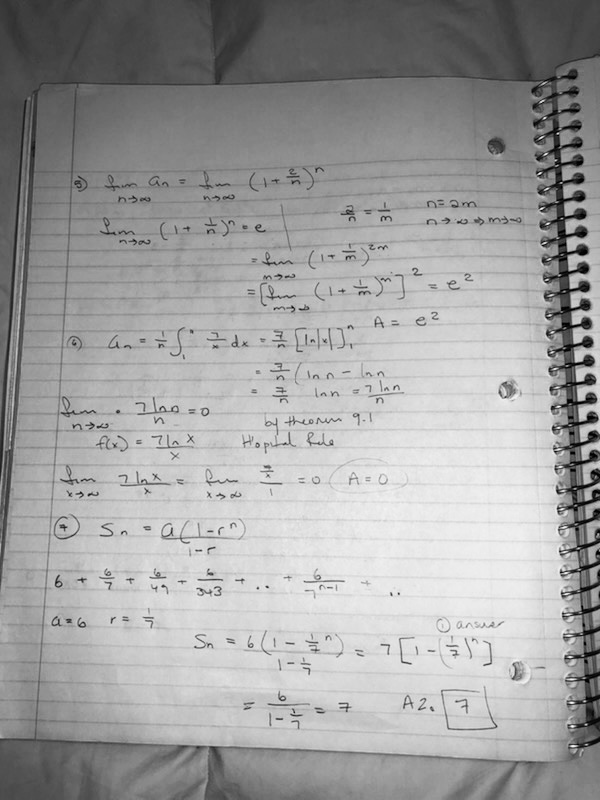 5) lim n→∞ an = lim n→∞ (1 + 2/n)^n
lim n→∞ (1 + 1/n)^n = e
2/n = 1/m n = 2m
n→∞ ⇒ m→∞
= lim m→∞ (1 + 1/m)^2m
= [lim m→∞ (1 + 1/m)^m]^2 = e^2
A = e^2
6) an = 1/n ∫_1^n 7/x dx = 7/n [ln|x|]_1^n
= 7/n (ln n - ln n
= 7/n ln n = 7 ln n/n
lim n→∞ • 7 ln n/n = 0 by theorem 9.1
f(x) = 7 ln x/x H'opital Rule
lim x→∞ 7 ln x/x = lim x→∞ (7/x)/1 = 0 A = 0
7) Sn = a(1-r^n)/1-r
6 + 6/7 + 6/49 + 6/343 + .. + 6/7^n-1 + ..
a = 6 r = 1/7
① answer
Sn = 6(1 - 1/7^n)/1 - 1/7 = 7[1 - (1/7)^n]
= 6/1 - 1/7 = 7 A2. 7